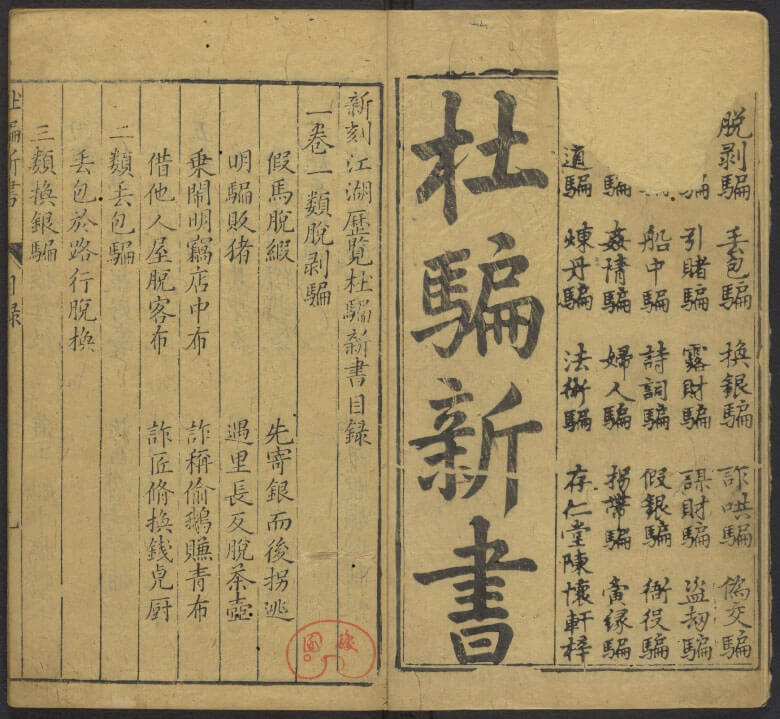 脫剥騙 丢包騙 換銀騙 詐哄騙 偽交騙
騙 引賭騙 露財騙 謀財騙 盗刼騙
船中騙 詩詞騙 假銀騙 衙役騙
騙 姦情騙 婦人騙 拐帶騙 夤縁騙
道騙 煉丹騙 法術騙 存仁堂陳懷軒梓
杜騙新書
新刻江湖歷覽杜騙新書目錄
一卷一類脫剥騙
假馬脫緞 先寄銀而後拐逃
明騙販猪 遇里長反脫茶壺
乘鬧明竊店中布 詐稱偷鵝賺青布
借他人屋脫客布 詐匠脩換錢卓厨
二類丢包騙
丢包於路行脫換
三類換銀騙
杜騙新書 目錄